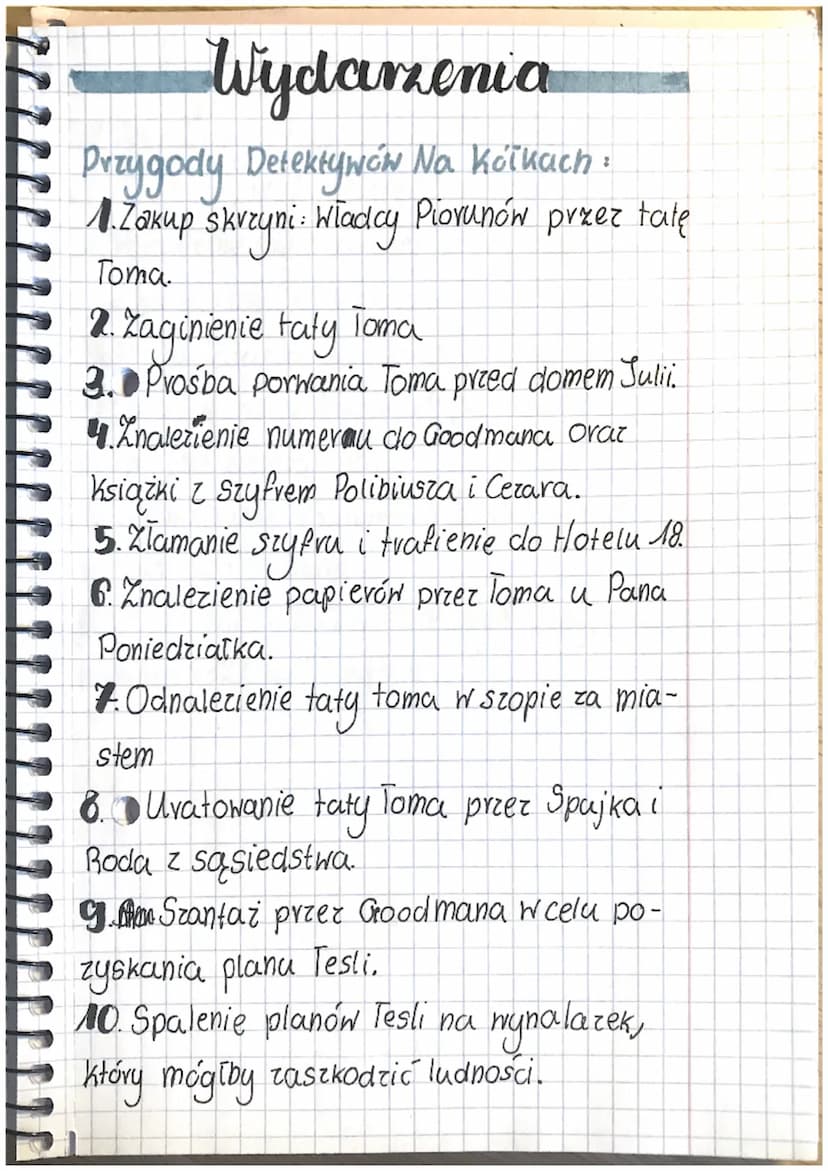 Wydarzenia
Przygody Detektywów Na Kółkach:
1. Zakup skrzyni: Władcy Piorunów przez tatę
Toma.
2. Zaginienie taty Toma
3. Prośba porwania Toma przed domem Julii.
4. Znalezienie numeru do Goodmana oraz
Książki z szyfrem Polibiusza i Cezara.
5. Złamanie szyfru i trafienie do Hotelu 18.
6. Znalezienie papierów przez Toma u Pana
Poniedziałka.
7. Odnalezienie taty toma w szopie za mia-
stem
8. Uratowanie taty Toma przez Spajka i
Roda z sąsiedstwa.
9. Szantaż przez Goodmana w celu po-
zyskania planu Tesli.
10. Spalenie planów Tesli na wynalazek,
który mógłby zaszkodzić ludności.